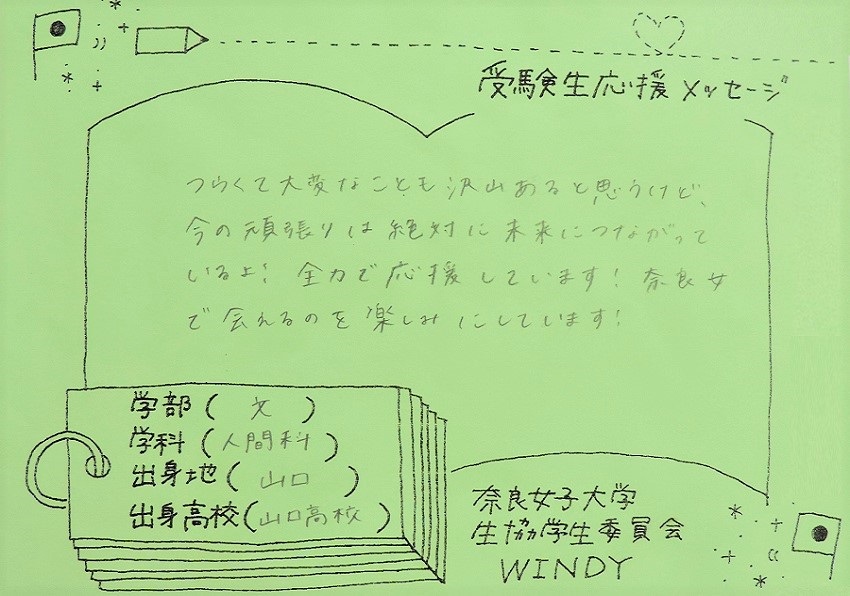 受験生応援メッセージ
つらくて大変なことも沢山あると思うけど、
今の頑張りは絶対に未来につながって
いるよ! 全力で応援しています! 奈良女
で会えるのを楽しみにしています!
学部(文)
学科(人間科)
出身地(山口)
出身高校(山口高校)
奈良女子大学
生協学生委員会
WINDY